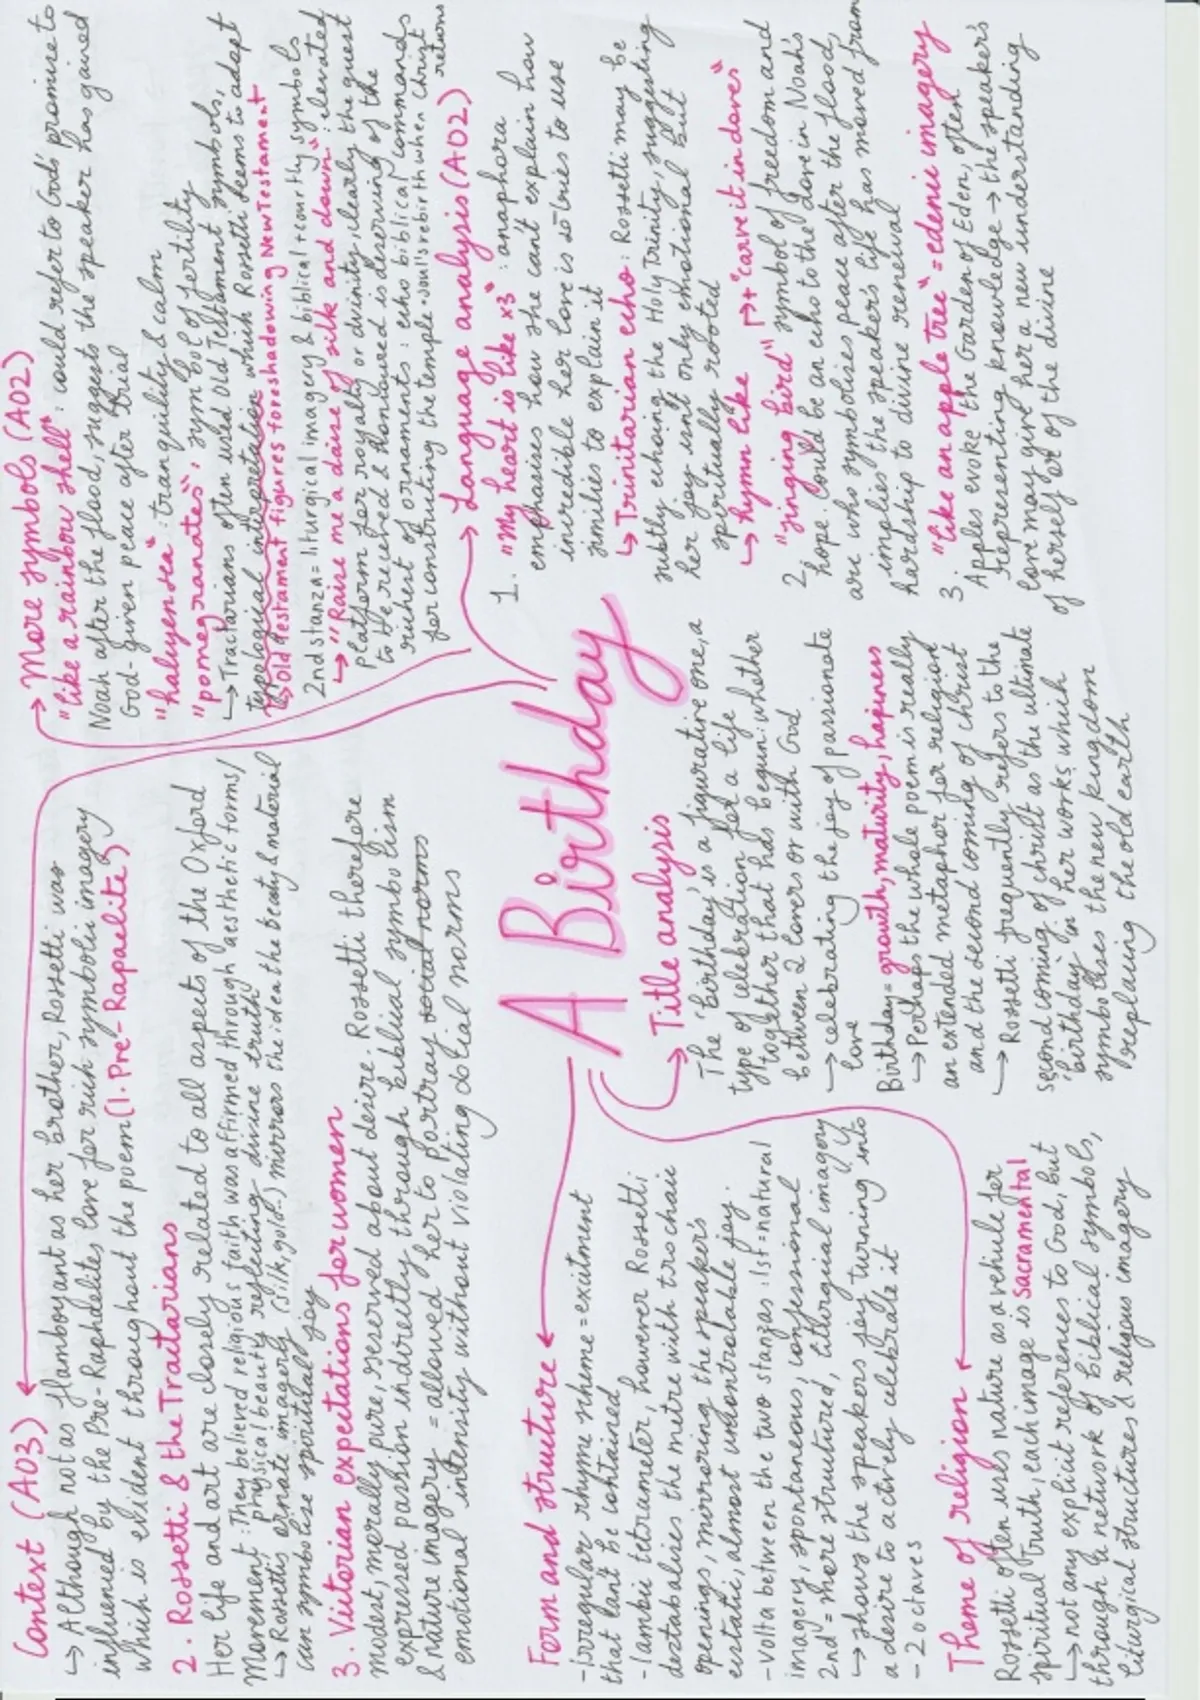 Context (AO3)
↳ Although not as flamboyant as her brother, Rossetti was
influenced by the Pre-Raphaelites love for rich symbolic imagery
which is evident throughout the poem (1. Pre-Rapaelite)
2. Rossetti & the Tractarians
Her life and art are closely related to all aspects of the Oxford
Movement: They believed religious faith was affirmed through aesthetic forms/
physical beauty reflecting divine truth
↳ Rossettis ornate imagery (silk, gold..) mirrors the idea the beauty & material
can symbolise spiritual joy
3. Victorian expectations for women
modest, morally pure, reserved about desire. Rossetti therefore
expressed passion indirectly through biblical symbolism
& nature imagery = allowed her to portray social norms
emotional intensity without violating social norms
→ More symbols (AO2)
"like a rainbow shell": could refer to God's promise to
Noah after the flood, suggests the speaker has gained
God-given peace after trial
"halcyon sea": tranquility & calm
"pomegranates": symbol of fertility
↳ Tractarians often used Old Testament symbols,
typological interpretation which Rossetti seems to adapt
↳ Old Testament figures foreshadowing New Testament
2nd stanza = liturgical imagery & biblical + courtly symbols
↳ "Raise me a dais of silk and down": elevated
platform for royalty or divinity, clearly the guest
to be received & honoured is deserving of the
richest of ornaments: echo biblical commands
for constructing the temple · soul's rebirth when Christ
returns
A Birthday
→ Language analysis (AO2)
1. "My heart is like x3": anaphora
emphasises how she can't explain how
incredible her love is so tries to use
similies to explain it
↳ Trinitarian echo: Rossetti may be
subtly echoing the Holy Trinity, suggesting
her joy isn't only emotional but
spiritually rooted
↳ hymn like
2. "singing bird" ↱+ "carve it in doves"
symbol of freedom and
hope. Could be an echo to the dove in Noah's
arc who symbolises peace after the flood,
implies the speaker's life has moved from
hardship to divine renewal
3. "like an apple tree" = edenic imagery
Apples evoke the Garden of Eden, often
representing knowledge → the speaker's
love may give her a new understanding
of herself or of the divine
→ Title analysis
The 'birthday' is a figurative one, a
type of celebration for a life
together that has begun: whether
between 2 lovers or with God
→ celebrating the joy of passionate
love
Birthday = growth, maturity, hapiness
→ Perhaps the whole poem is really
an extended metaphor for religion
and the second coming of christ
↳ Rossetti frequently refers to the
second coming of christ as the ultimate
'birthday' in her works, which
symbolises the new kingdom
replacing the old earth
Form and structure
-Irregular rhyme scheme = excitment
that can't be contained
-Iambic tetrameter, however Rossetti
destabalises the metre with trochaic
openings, mirroring the speaker's
estatic, almost uncontrolable joy.
-volta between the two stanzas: 1st = natural
imagery, spontaneous, confessional
2nd = more structured, liturgical imagery
↳ shows the speakers joy turning into
a desire to actively celebrate it
- 2 octaves
Theme of religion
Rossetti often uses nature as a vehicle for
spiritual truth, each image is Sacramental
↳ not any explicit references to God, but
through a network of biblical symbols,
liturgical structures & religious imagery